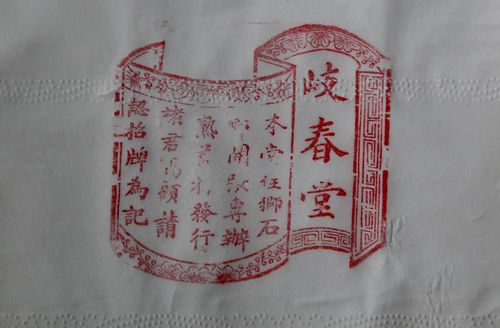 岐春堂
本堂在獅石
開設專辦
熟藥材發行
諸君賜顧請
認招牌為記